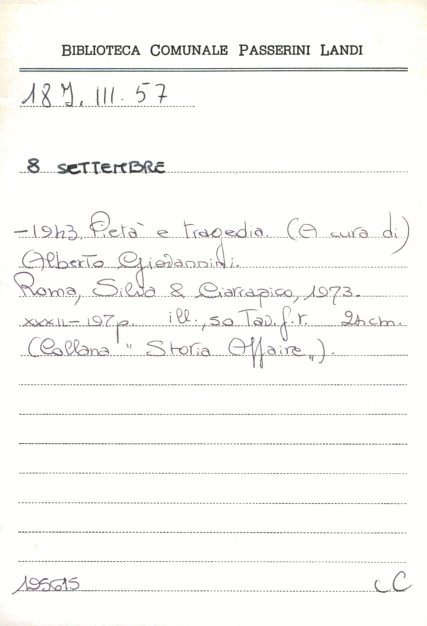 BIBLIOTECA COMUNALE PASSERINI LANDI
18 J. III. 57
8 SETTEMBRE
-1943. Pietà e tragedia. (A cura di)
Alberto Giovannini.
Roma, Silva & Ciarrapico, 1973.
XXXII-197 p. ill., 50 Tav. f.t. 24 cm.
(Collana "Storia Affaire").
195615
CC